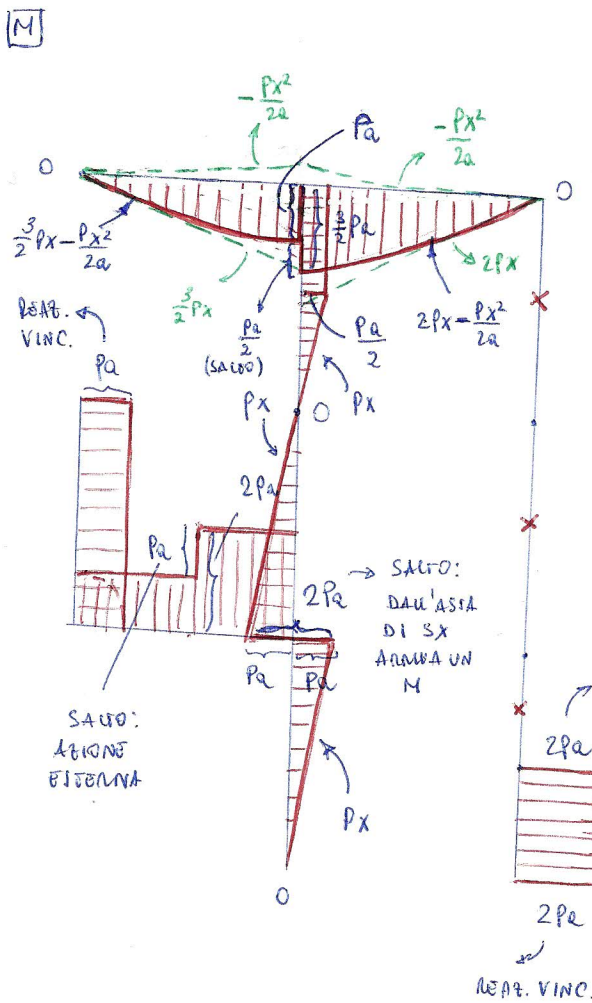 M
-Px²/2a
Pa
-Px²/2a
0
0
3/2 Px - Px²/2a
3/2 Pa
2Px
REAZ.
VINC.
3/2 Px
Pa/2
(SALTO)
Pa/2
2Px - Px²/2a
Pa
Px
0
Px
2Pa
Pa
2Pa
SALTO:
DALL'ASTA
DI SX
ARRIVA UN
M
Pa
Pa
SALTO:
AZIONE
ESTERNA
2Pa
Px
0
2Pa
REAZ. VINC.